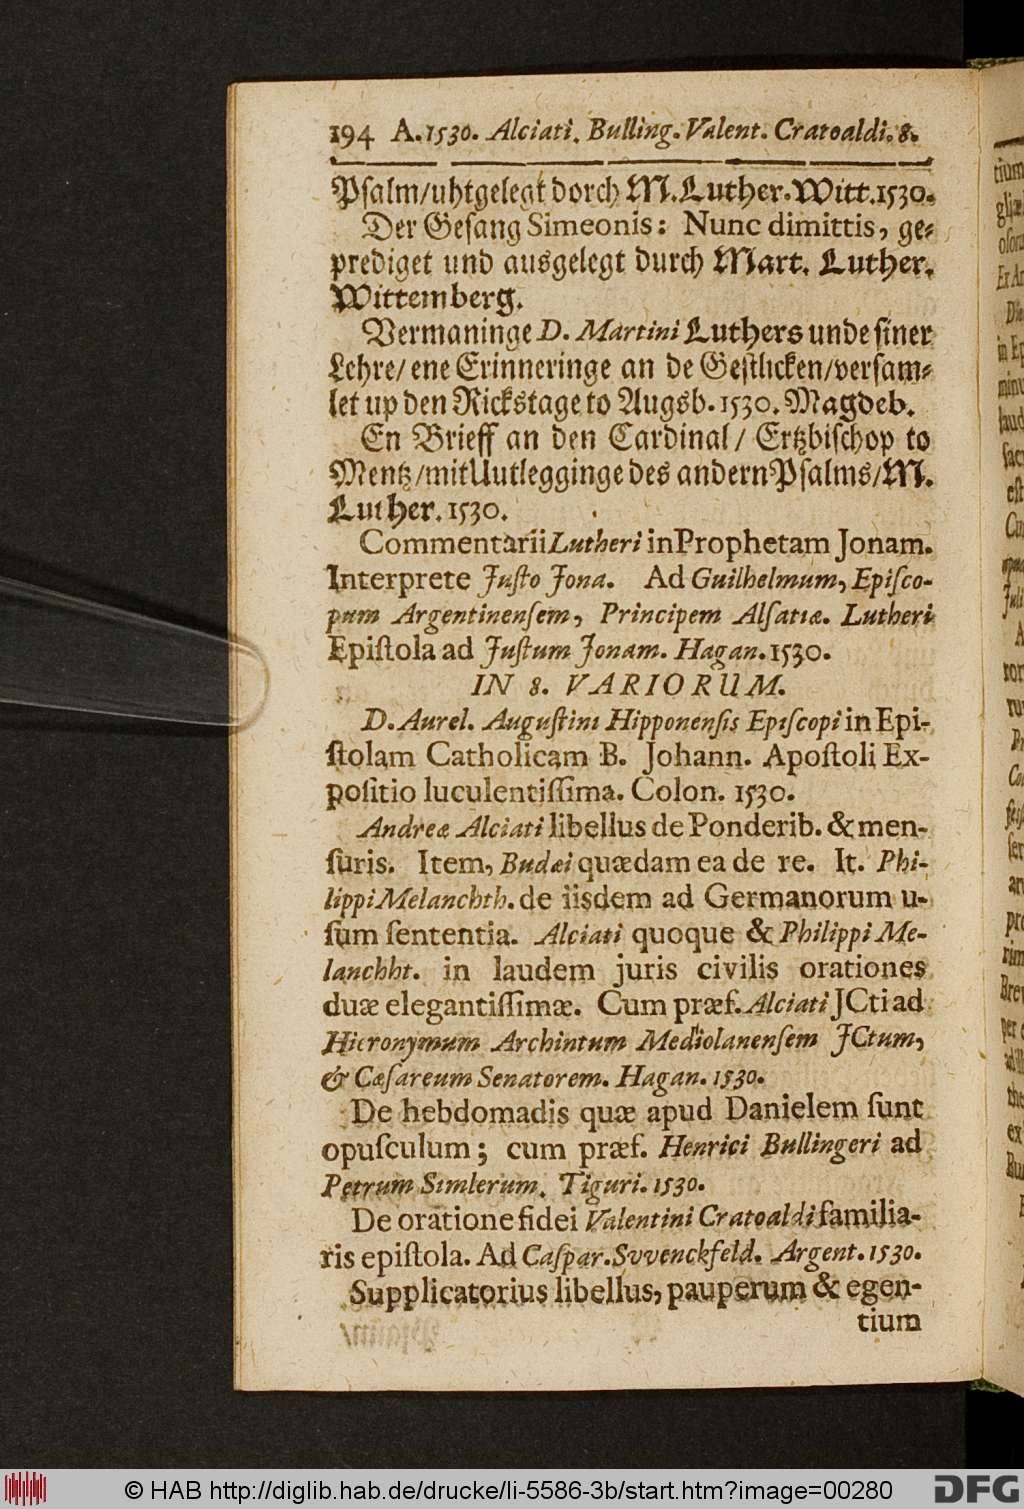 194 A. 1530. Alciati. Bulling. Valent. Cratoaldi. 8.
Psalm/uhtgelegt dorch M. Luther. Witt. 1530.
Der Gesang Simeonis: Nunc dimittis, ge⸗
prediget und ausgelegt durch Mart. Luther.
Wittemberg.
Vermaninge D. Martini Luthers unde siner
Lehre/ ene Erinneringe an de Gestlicken/versam⸗
let up den Rickstage to Augsb. 1530. Magdeb.
En Brieff an den Cardinal/ Ertzbischop to
Mentz/mit Uutlegginge des andern Psalms/M.
Luther. 1530.
Commentarii Lutheri in Prophetam Jonam.
Interprete Juſto Jona. Ad Guilhelmum, Epiſco-
pum Argentinenſem, Principem Alſatiæ. Lutheri
Epiſtola ad Juſtum Jonam. Hagan. 1530.
IN 8. VARIORUM.
D. Aurel. Auguſtini Hipponenſis Epiſcopi in Epi-
ſtolam Catholicam B. Johann. Apoſtoli Ex-
poſitio luculentiſſima. Colon. 1530.
Andreæ Alciati libellus de Ponderib. & men-
ſuris. Item, Budæi quædam ea de re. It. Phi-
lippi Melanchth. de iisdem ad Germanorum u-
ſum ſententia. Alciati quoque & Philippi Me-
lanchht. in laudem juris civilis orationes
duæ elegantiſſimæ. Cum præf. Alciati JCti ad
Hieronymum Archintum Mediolanenſem JCtum,
& Cæſareum Senatorem. Hagan. 1530.
De hebdomadis quæ apud Danielem ſunt
opuſculum; cum præf. Henrici Bullingeri ad
Petrum Simlerum. Tiguri. 1530.
De oratione fidei Valentini Cratoaldi familia-
ris epiſtola. Ad Caſpar. Svvenckfeld. Argent. 1530.
Supplicatorius libellus, pauperum & egen-
tium
© HAB http://diglib.hab.de/drucke/li-5586-3b/start.htm?image=00280
DFG